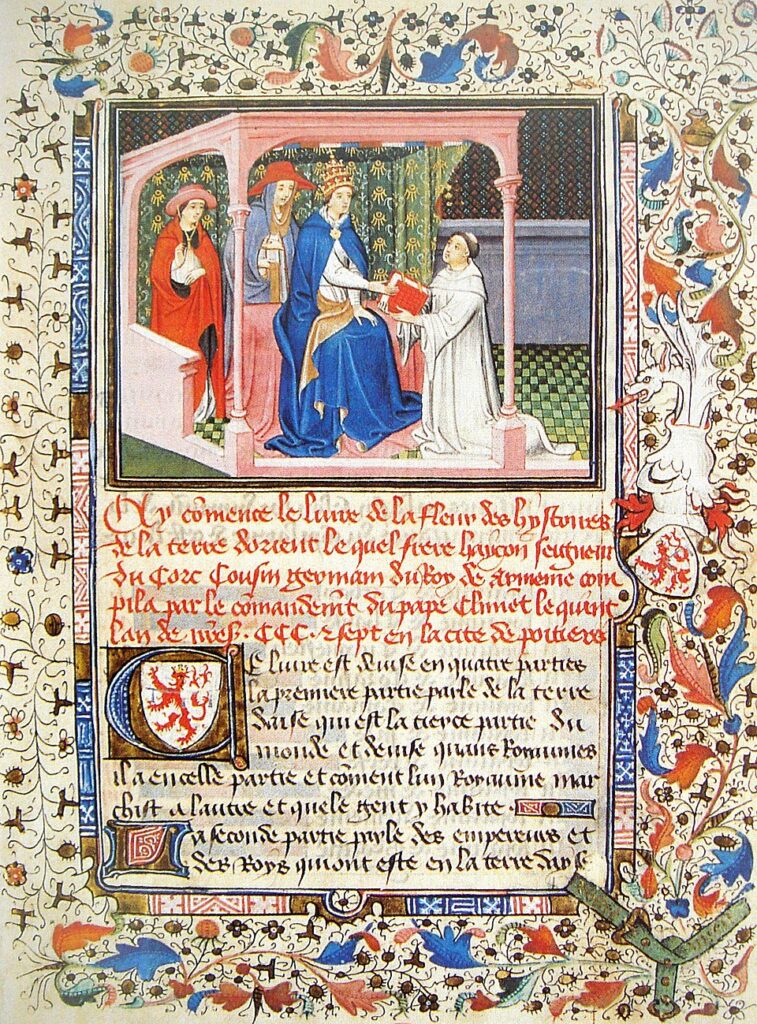 Cy cõmence le liure de la fleur des hystoires
de la terre dorient le quel frere haycon seigneur
du Corc Cousin germain du Roy de Armenie com
pila par le cõmandemẽt du pape Climẽt le quint
lan de CCC ⁊ sept en la cite de poitiers
Ce liure est deuise en quatre parties
la premiere partie parle de la terre
daise qui est la tierce partie du
monde et deuise quans Royaumes
il a en celle partie et cõment lun Royaume mar
chist a lautre et quele gent y habite
La seconde partie parle des empereurs et
des Roys qui ont este en la terre